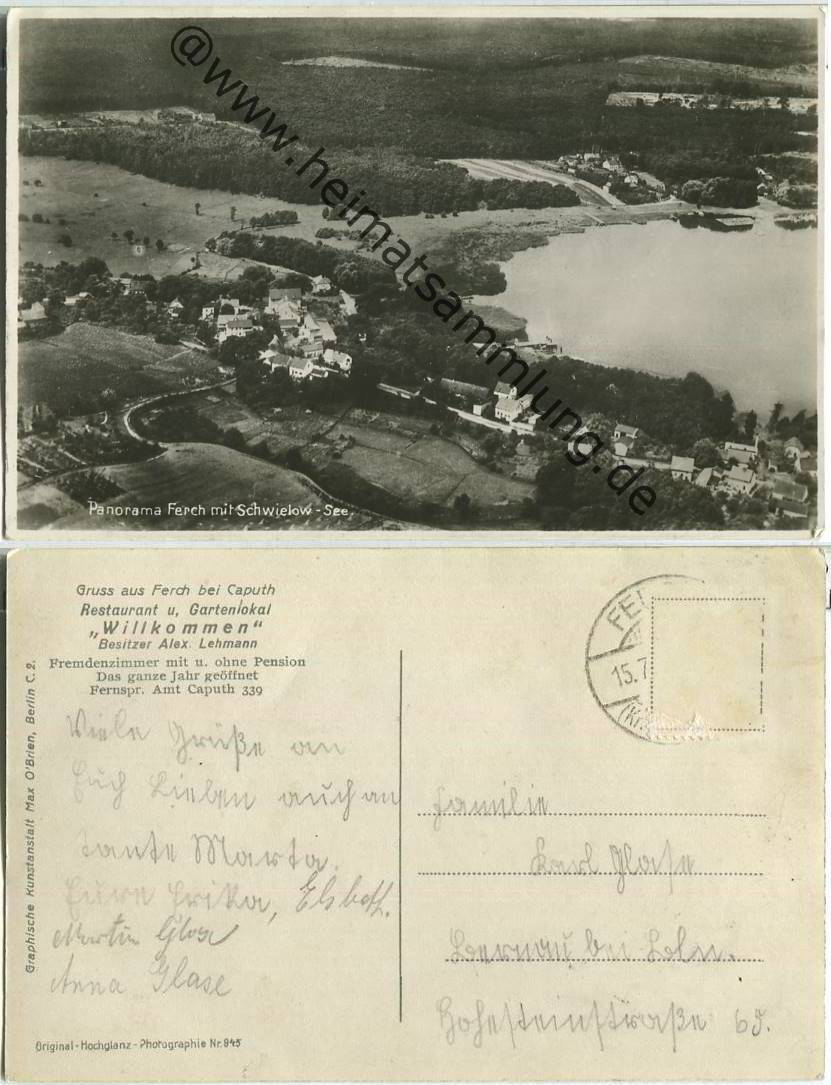 @www.heimatsammlung.de
Panorama Ferch mit Schwielow-See.
Gruss aus Ferch bei Caputh
Restaurant u. Gartenlokal
„Willkommen“
Besitzer Alex. Lehmann
Fremdenzimmer mit u. ohne Pension
Das ganze Jahr geöffnet
Fernspr. Amt Caputh 339
Viele Grüße an
Euch Lieben auch an
Tante Marta.
Eure Erika, Elsbeth.
Martin Glase
Anna Glase
Graphische Kunstanstalt Max O'Brien, Berlin C. 2.
Original-Hochglanz-Photographie Nr. 945
15.7
Familie
Karl Glase
Bernau bei Bln.
Hohesteinstraße 65.